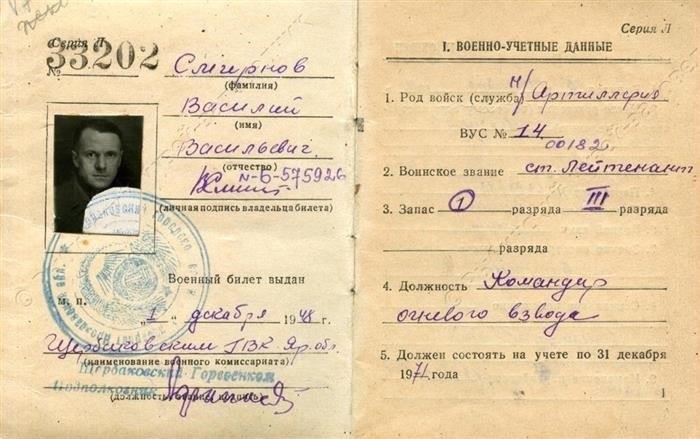 Серия Л
№ 33202
Смирнов
(фамилия)
Василий
(имя)
Васильевич
(отчество)
N-Б-575926
(личная подпись владельца билета)
Военный билет выдан
м. п. „1" декабря 1948 г.
Щербаковским ГВК Яр. обл.
(наименование военного комиссариата)
Щербаковский Горвоенком
Подполковник
Серия Л
I. ВОЕННО-УЧЕТНЫЕ ДАННЫЕ
1. Род войск (служба) Артиллерия
ВУС № 14
001820
2. Воинское звание ст. лейтенант
3. Запас 1 разряда III разряда
разряда
4. Должность Командир
огневого взвода
5. Должен состоять на учете по 31 декабря
1971 года
1